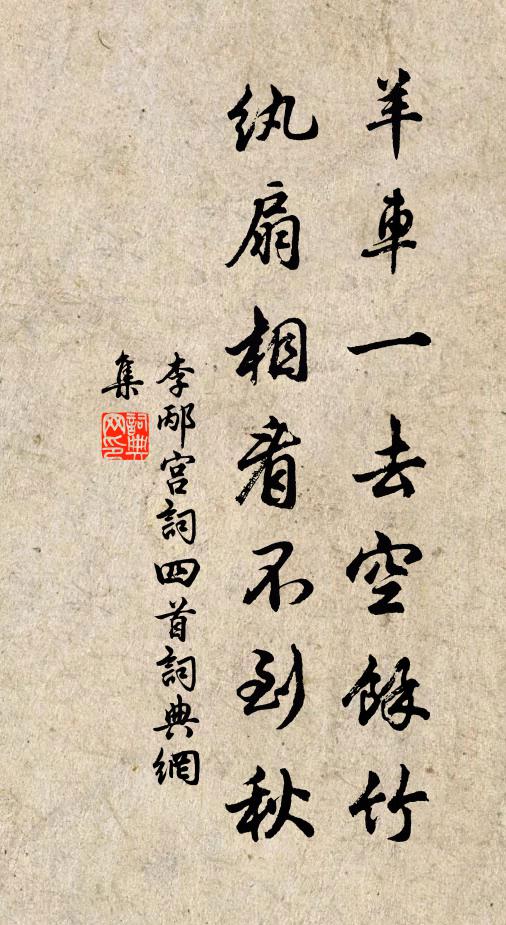 羊車一去空餘竹
紈扇相看不到秋
李邴宮詞四首詞典網
集
詞典
网印